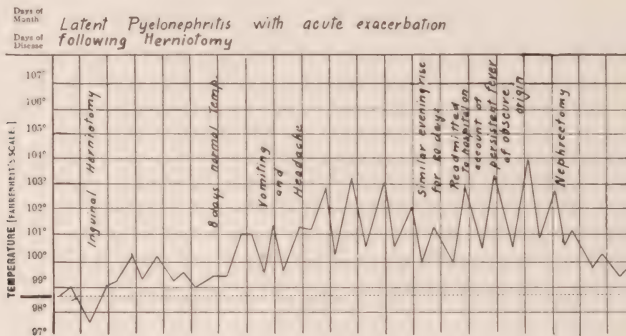 Days of Month
Latent Pyelonephritis with acute exacerbation
Days of Disease
following Herniotomy
TEMPERATURE [FAHRENHEIT'S SCALE.]
107°
106°
105°
104°
103°
102°
101°
100°
99°
98°
97°
Inguinal Herniotomy
8 days normal Temp.
Vomiting
and
Headache
Similar evening rise
for 80 days
Readmitted
To hospital on
account of
persistent fever
of obscure
origin
Nephrectomy